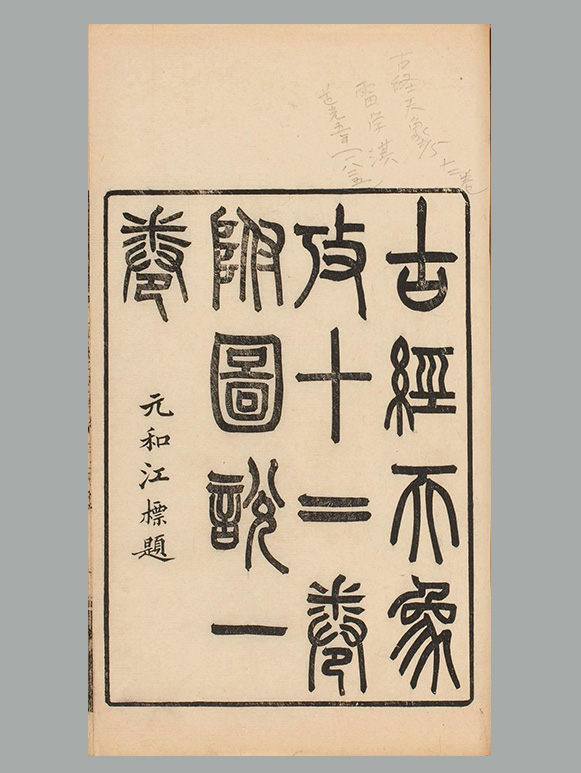 古経天象考十二卷
雷学淇
道光五年一八二五
古經天象
攷十二卷
附圖說一
卷
元和江標題